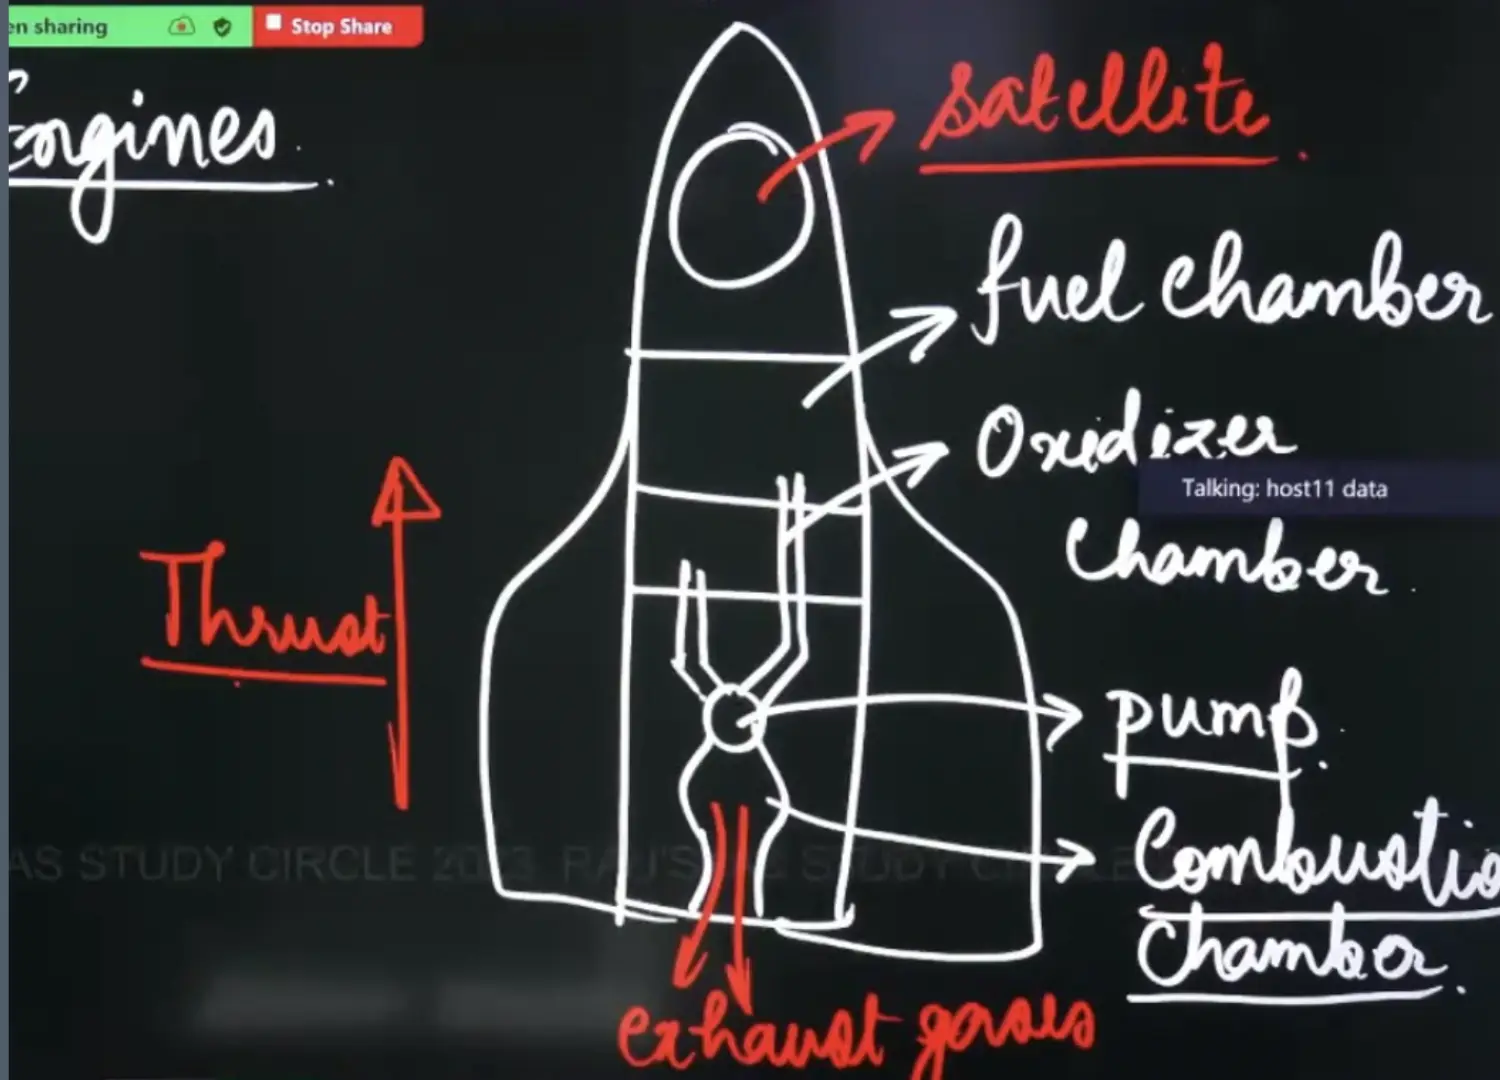 en sharing
Stop Share
Engines
satellite
fuel chamber
Oxidizer
Talking: host11 data
Chamber
Thrust
pump
AS STUDY CIRCLE 2023 RAJ'S
AS STUDY CIRCLE
Combustio
Chamber
exhaust gases